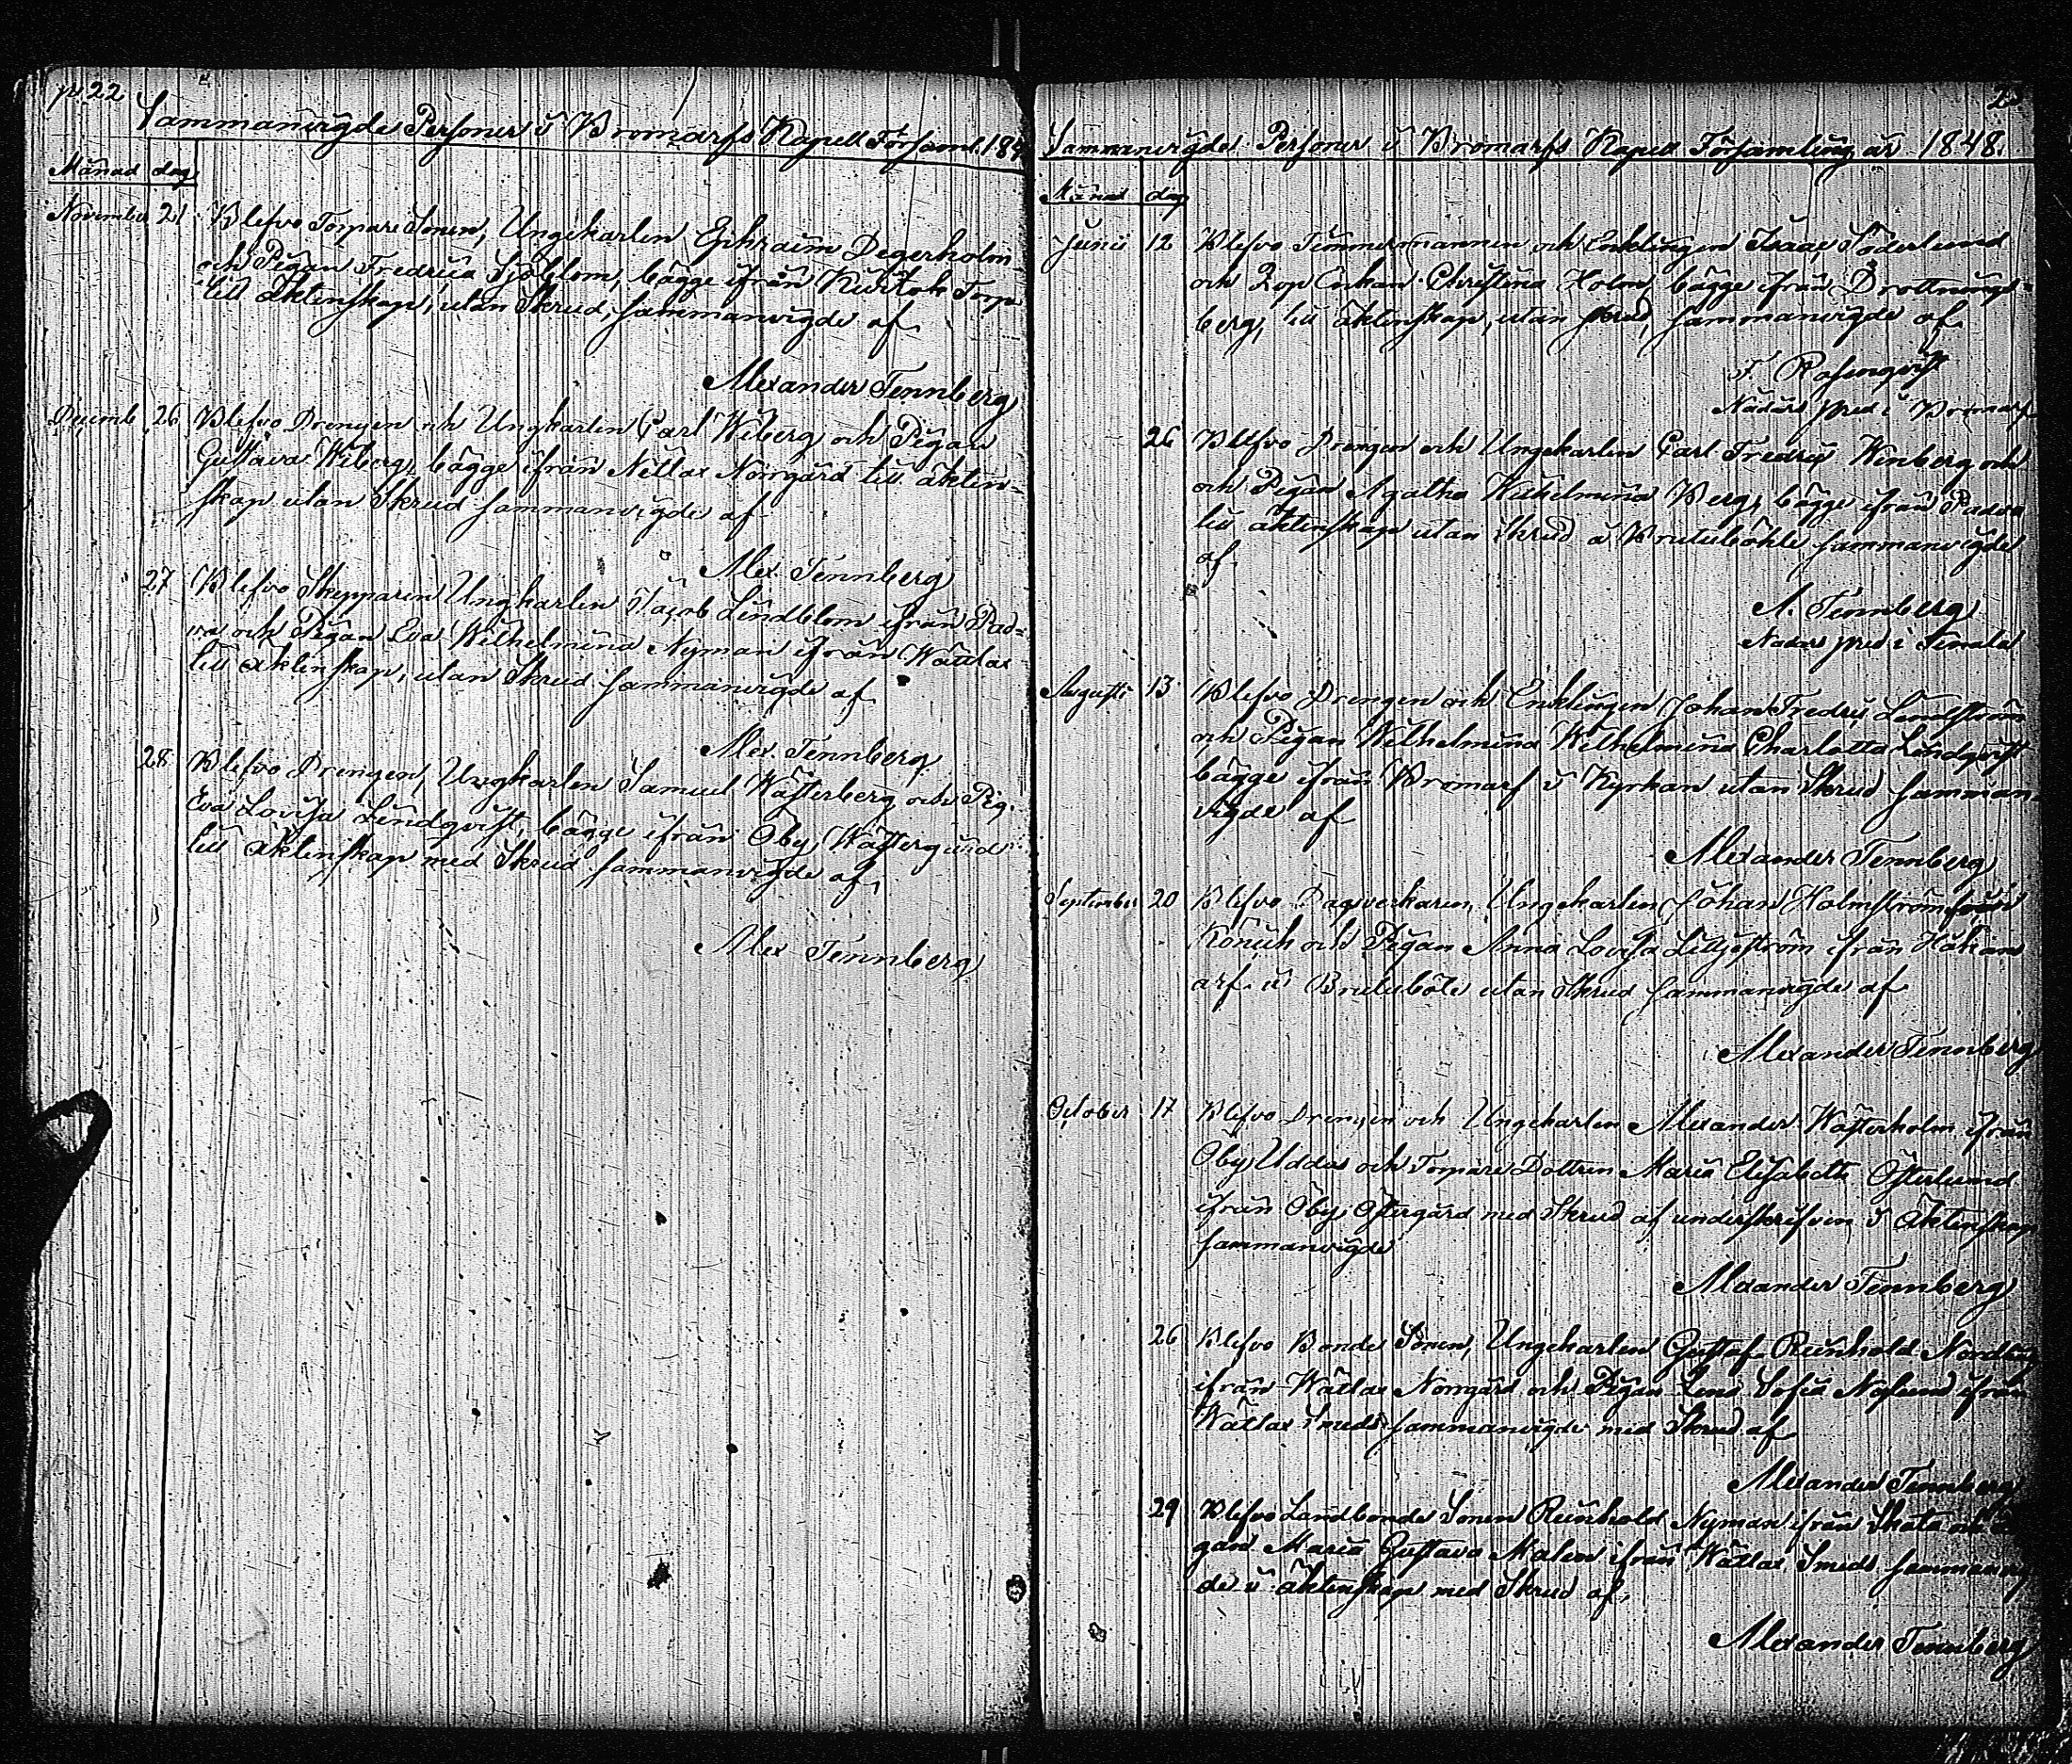 p. 22
Sammanvigde Personer i Bromarfs Kapell Församl. 184
Månad dag
November 21 Blefvo Torpare Sonen, Ungekarlen Ephraim Degerholm
och Pigan Fredrica Sjöblom, bägge ifrån Torp
till äktenskap, utan Skrud, sammanvigde af
Alexander Tennberg
Decemb. 26 Blefvo Drengen och Ungkarlen Carl Wiberg och Pigan
Gustava Wiberg, bägge ifrån Norrgård till äkten-
skap utan Skrud sammanvigde af
Alex. Tennberg
27 Blefvo Skepparen Ungkarlen Jacob Lindblom ifrån Pad-
va och Pigan Eva Wilhelmina Nyman ifrån Wättlax
till äktenskap, utan Skrud sammanvigde af
Alex. Tennberg
28 Blefvo Drengen, Ungkarlen Samuel Wästerberg och Pig.
Eva Lovisa Lindqvist, bägge ifrån Öby, Wästergård
till äktenskap med Skrud sammanvigde af,
Alex Tennberg
Sammanvigde Personer i Bromarfs Kapell Församling år 1848.
Månad dag
Junii 12 Blefvo Timmermannen och Enklingen Isaac Söderlund
och Christina Holm, bägge ifrån Drottnings-
berg, till äktenskap, utan skrud, sammanvigde af
F. Rosenqvist
Nådårs pred i Bromarf
26 Blefvo Drengen och Ungekarlen Carl Fredric Winberg och
och Pigan Agatha Wilhelmina Berg, bägge ifrån Padva
till äktenskap utan Skrud å sammanvigde
af.
A. Tennberg
Nådårs pred i Tenala
Augusti 13 Blefvo Drengen och Enklingen Johan Fredric Lindström
och Pigan Wilhelmina Wilhelmina Charlotta Lindqvist
bägge ifrån Bromarf i Kyrkan utan Skrud samman-
vigde af
Alexander Tennberg
September 20 Blefvo Dagsverkaren, Ungekarlen Johan Holmström
och Pigan Anna Lovisa Liljeström ifrån Håkans
arf. i utan Skrud sammanvigde af
Alexander Tennberg
October 17 Blefvo Drengen och Ungekarlen Alexander Wästerholm ifrån
Öby Uddas och Torpare Dottren Maria Elisabeth Österlund
ifrån Öby Östergård med Skrud af underskrifven i Äktenskap
sammanvigde
Alexander Tennberg
26 Blefvo Bonde Sonen, Ungekarlen Gustaf Reinhold Nordling
ifrån Wättlax Norrgård och Pigan Lena Sofia ifrån
Wättlax Smeds sammanvigde med Skrud af
Alexander Tennberg
29 Blefvo Landbonde Sonen Reinhold Nyman ifrån Skata och
gan Maria Gustava Malen ifrån Wättlax Smeds sammanvig
de i äktenskap med Skrud af,
Alexander Tennberg